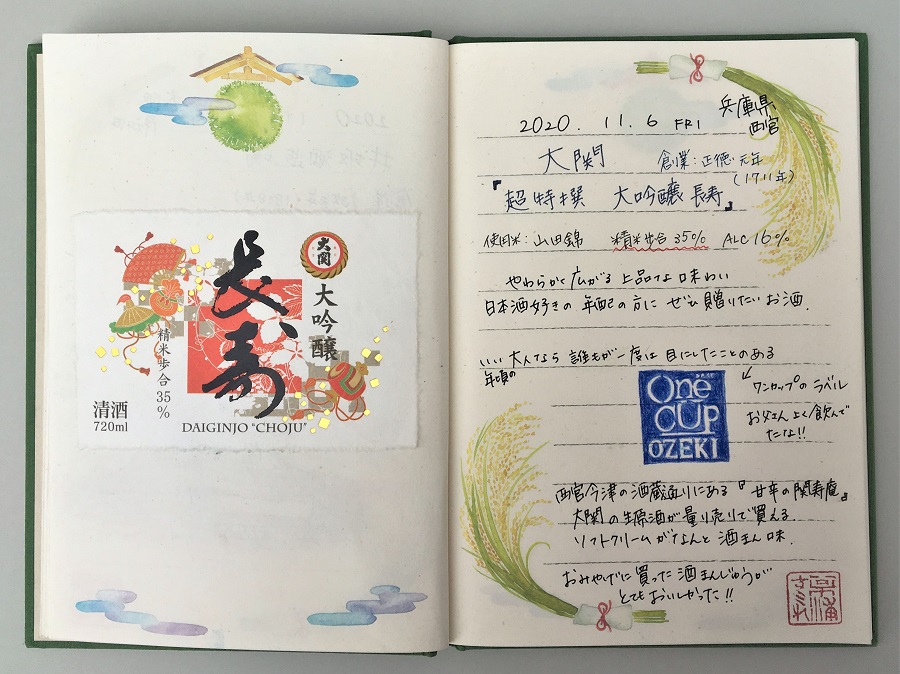 大関
長寿
大吟醸
精米歩合35%
清酒
720ml
DAIGINJO "CHOJU"
2020. 11. 6 FRI
兵庫県
西宮
大関 創業:正徳元年
(1711年)
『超特撰 大吟醸 長寿』
使用米:山田錦 精米歩合35% ALC16%
やわらかく広がる上品な味わい
日本酒好きの年配の方にぜひ贈りたいお酒.
いい大人なら誰もが一度は目にしたことのある
年頃の
One
CUP
OZEKI
ワンカップのラベル
お父さんよく飲んで
たな!!
西宮今津の酒蔵通りにある『甘辛の関寿庵』
大関の生原酒が量り売りで買える.
ソフトクリームがなんと酒まん味.
おみやげに買った酒まんじゅうが
とてもおいしかった!!